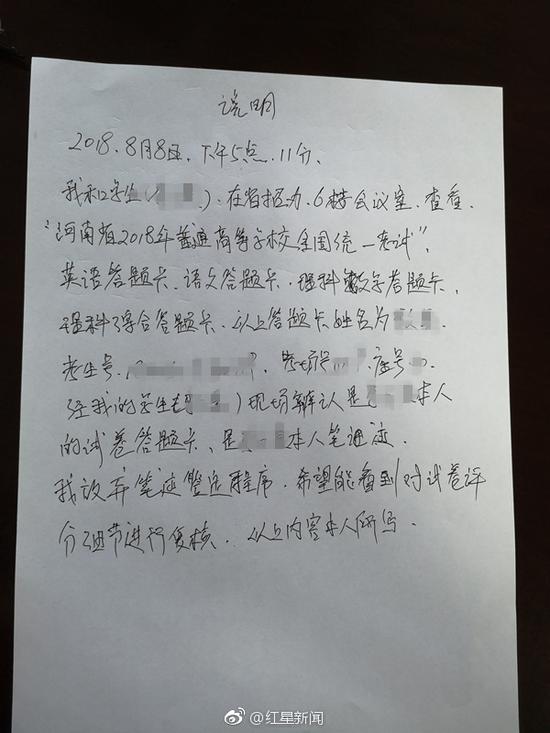 说明
2018.8月8日.下午5点.11分.
我和学生( ).在省招办.6楼会议室.查看.
"河南省2018年普通高等学校全国统一考试",
英语答题卡、语文答题卡.理科数学答题卡、
理科综合答题卡.以上答题卡姓名为
考生号. 考场号 .座号
经我的学生( )现场辨认是 本人
的试卷答题卡、是 本人笔迹.
我放弃笔迹鉴定程序.希望能看到对试卷评
分细节进行复核.以上内容本人所写.
@红星新闻